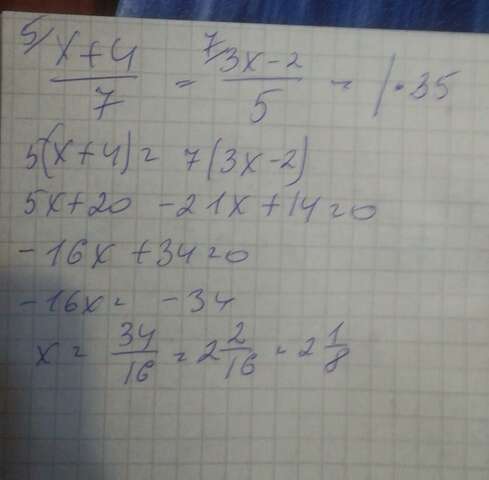 5/ x+4/7 = 7/ 3x-2/5 - | · 35
5(x+4) = 7(3x-2)
5x+20 -21x+14=0
-16x +34=0
-16x = -34
x = 34/16 = 2 2/16 = 2 1/8